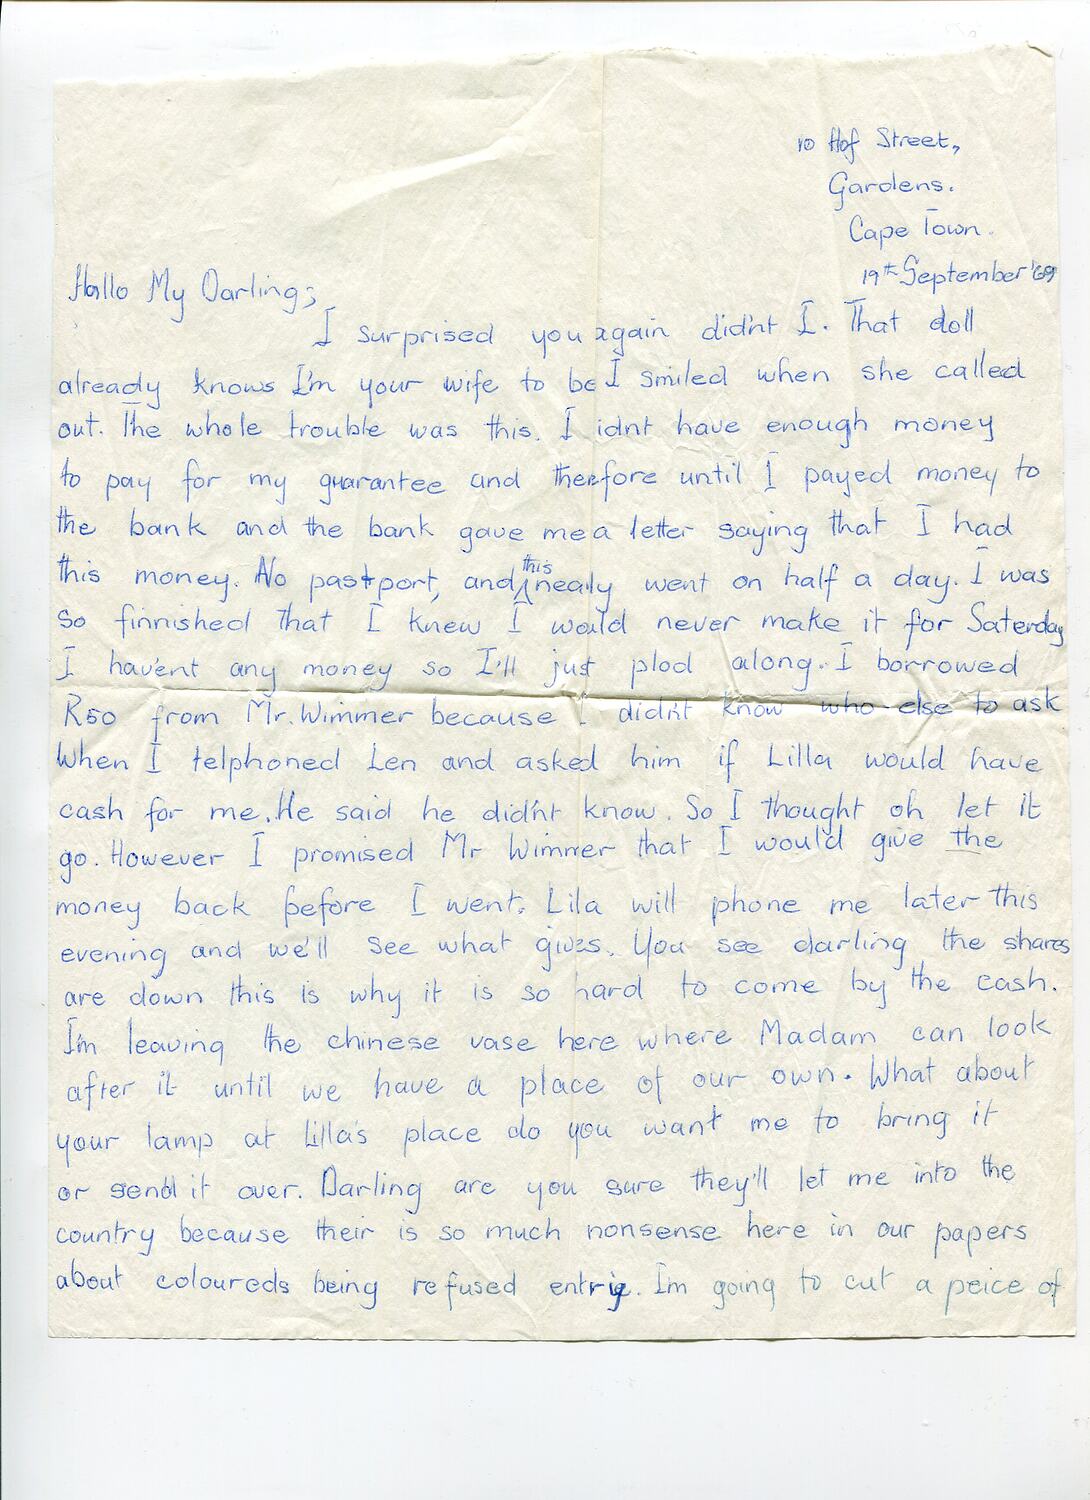 10 Hof Street,
Gardens.
Cape Town.
19th September '69
Hallo My Darling,
I surprised you again did'nt I. That doll
already knows I'm your wife to be I smiled when she called
out. The whole trouble was this. I idnt have enough money
to pay for my guarantee and therefore until I payed money to
the bank and the bank gave me a letter saying that I had
this money. No passport, and this nearly went on half a day. I was
so finnished that I knew I would never make it for Saterday
I hav'ent any money so I'll just plod along. I borrowed
R50 from Mr. Wimmer because I did'nt know who else to ask
When I telphoned Len and asked him if Lilla would have
cash for me. He said he did'nt know. So I thought oh let it
go. However I promised Mr Wimmer that I would give the
money back before I went. Lila will phone me later this
evening and we'll see what gives. You see darling the shares
are down this is why it is so hard to come by the cash.
I'm leaving the chinese vase here where Madam can look
after it until we have a place of our own. What about
your lamp at Lilla's place do you want me to bring it
or send it over. Darling are you sure they'll let me into the
country because their is so much nonsense here in our papers
about coloureds being refused entry. I'm going to cut a peice of